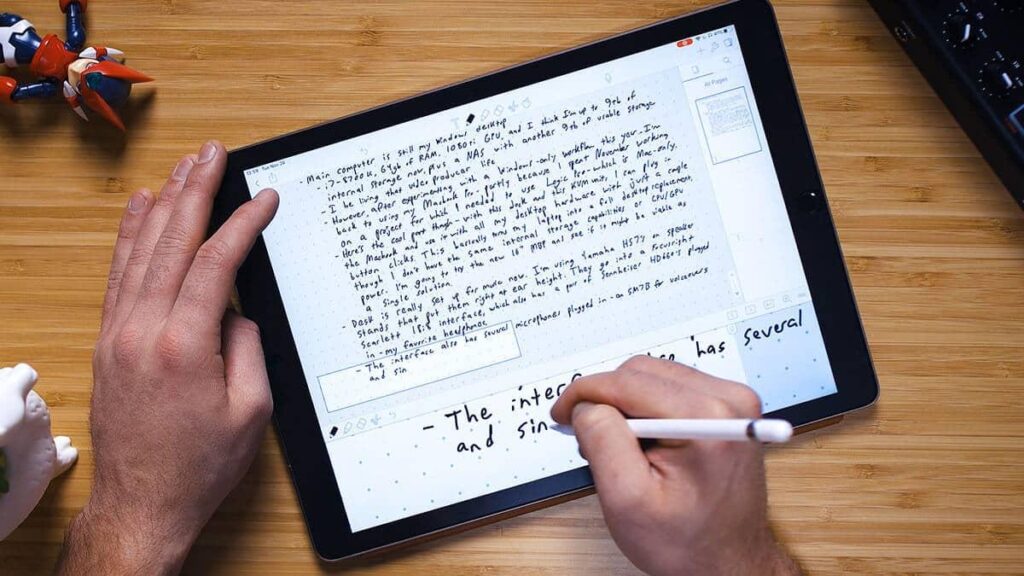 - Main computer is still my Windows desktop
- i7-8700K, 64gb of RAM, 1080ti GPU, and I think I'm up to 9tb of
internal storage now, plus a NAS with another 9tb of usable storage
- I be living that video producer life.
- However, after experimenting with a Windows-only workflow this year, I'm
back to using my Macbook Pro, partly because I spent November working
on a project for which I needed to use Logic Pro - which is Mac-only.
- Here's the cool part though: with this desk and KVM unit, I can plug in
the Macbook and use it with all my desktop hardware with just a couple
button clicks. This basically turns my laptop into a full desktop replacement,
though I don't have the same internal storage capabilities or CPU/GPU
power. I'm going to try the new 16" MBP and see if it might be viable as
a single solution.
- Desk is really set up for music now. I'm using Yamaha HS7s on speaker
stands that put them right up at ear height. They go into a Focusright
Scarlett 18i8 interface, which also has a pair of Sennheiser HD660s plugged
in - my favorite headphones
- The interface also has several microphones plugged in - an SM7B for voiceovers
and sin
- The interf also has several
and sin
All Pages
Tue Nov 26